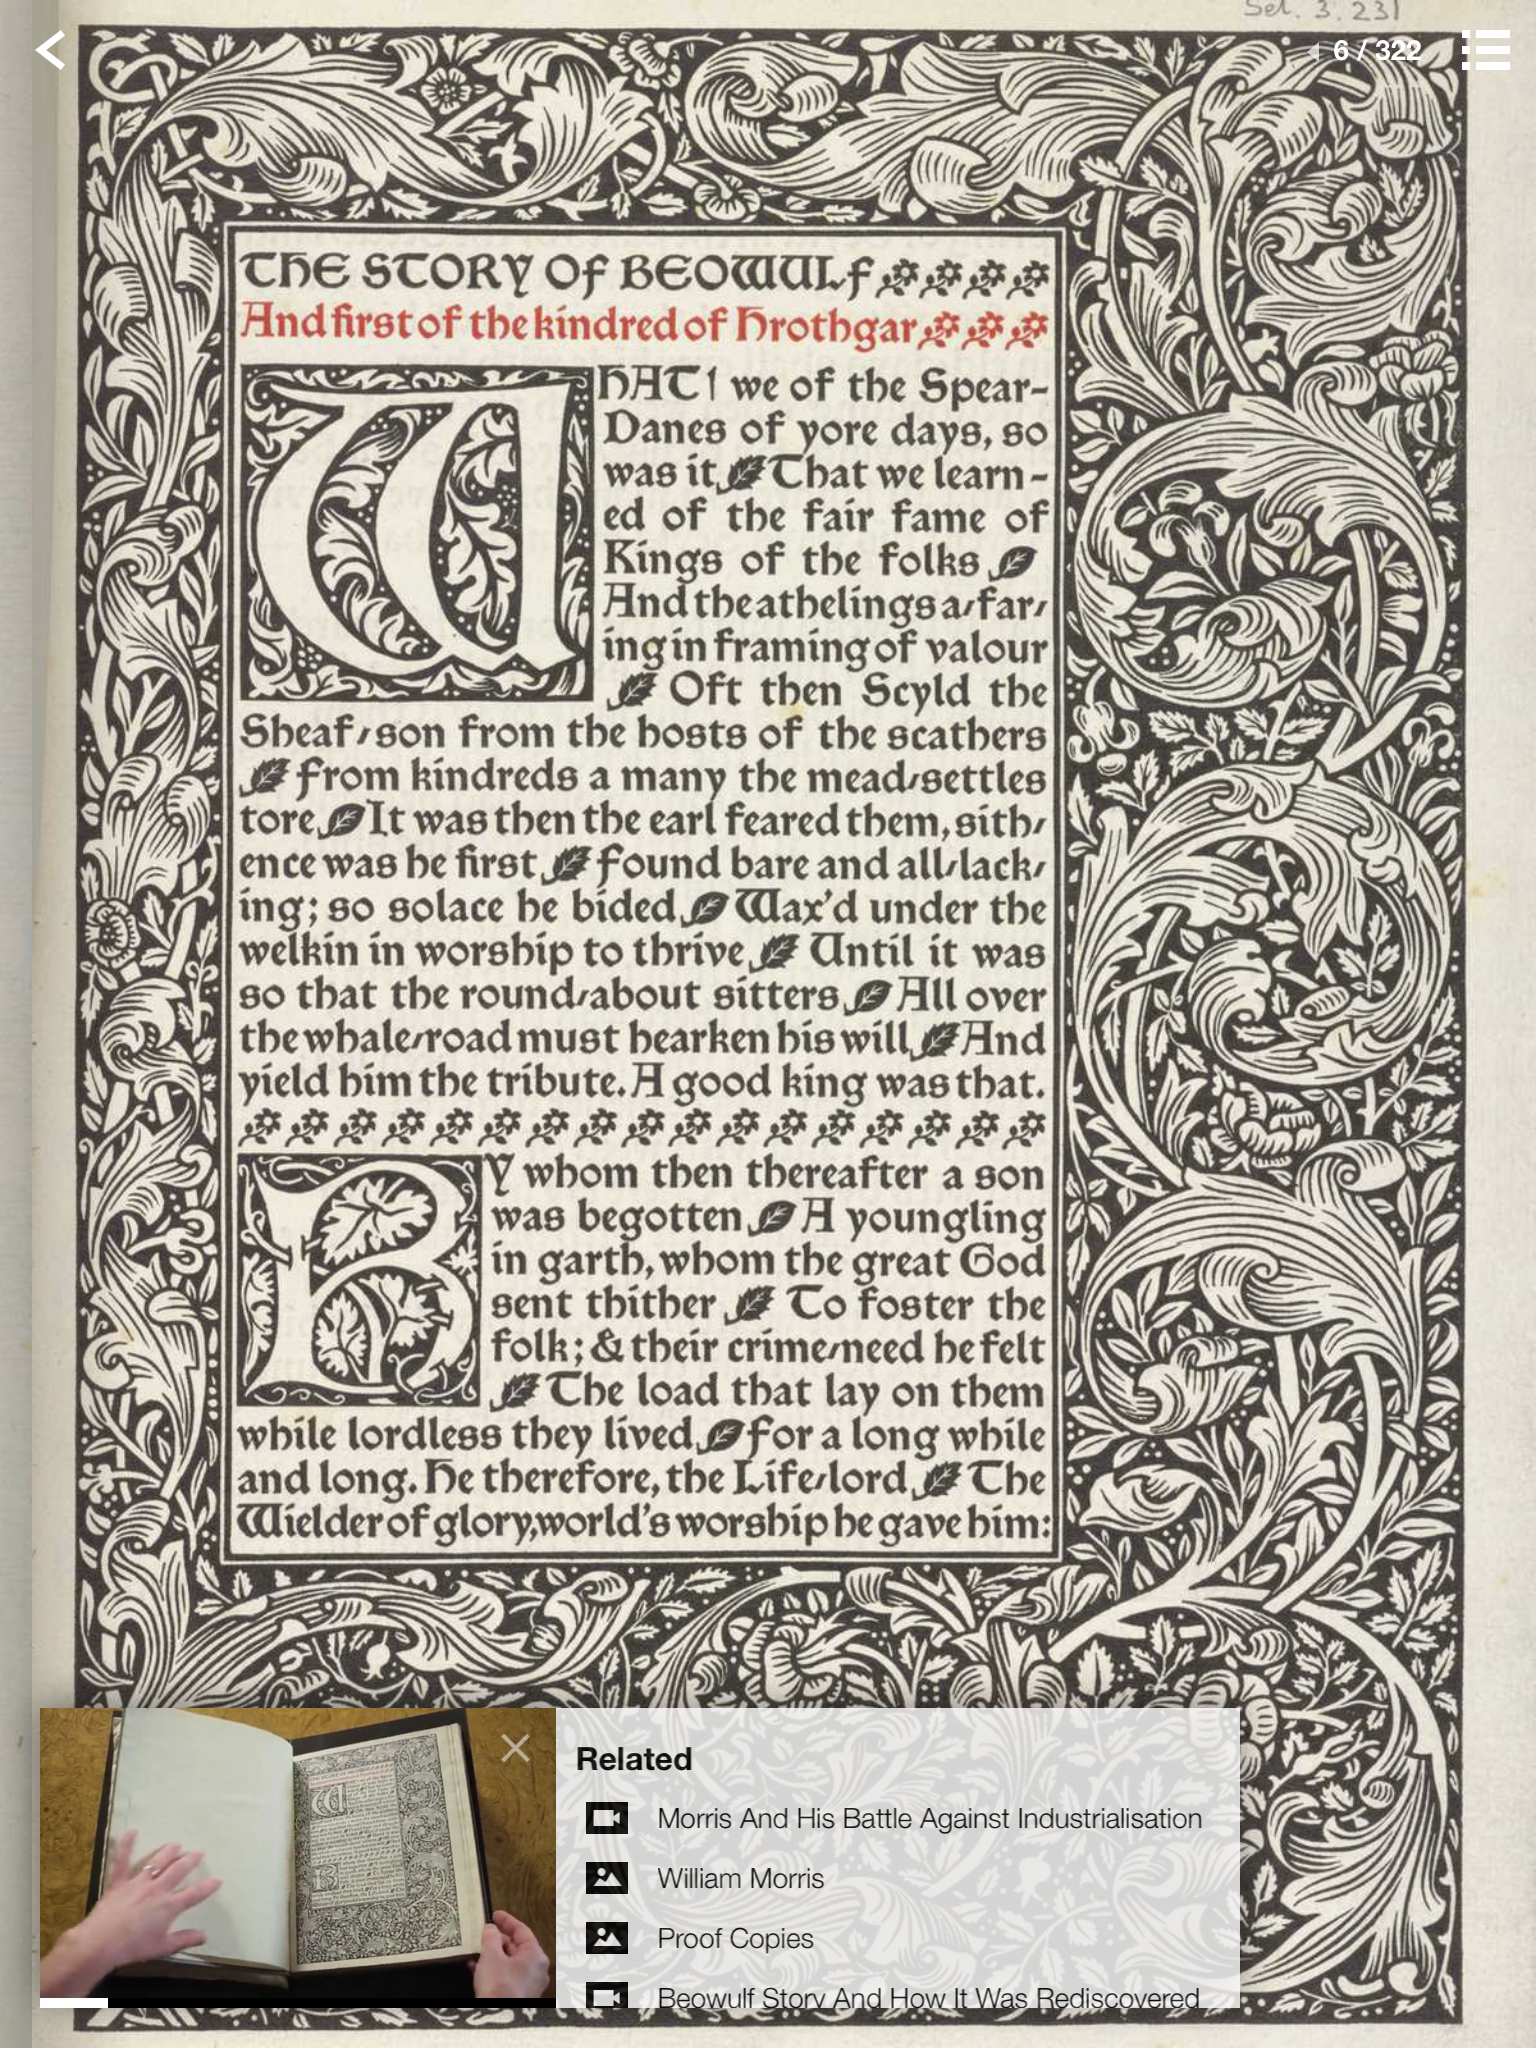 Sel. 3. 231
6 / 322
THE STORY OF BEOWULF
And first of the kindred of Hrothgar
WHAT! we of the Spear-
Danes of yore days, so
was it That we learn-
ed of the fair fame of
Kings of the folks
And the athelings a-far-
ing in framing of valour
Oft then Scyld the
Sheaf-son from the hosts of the scathers
From kindreds a many the mead-settles
tore It was then the earl feared them, sith-
ence was he first Found bare and all-lack-
ing; so solace he bided Wax'd under the
welkin in worship to thrive Until it was
so that the round-about sitters All over
the whale-road must hearken his will And
yield him the tribute. A good king was that.
BY whom then thereafter a son
was begotten A youngling
in garth, whom the great God
sent thither To foster the
folk; & their crime-need he felt
The load that lay on them
while lordless they lived For a long while
and long. He therefore, the Life-lord The
Wielder of glory, world's worship he gave him:
Related
Morris And His Battle Against Industrialisation
William Morris
Proof Copies
Beowulf Story And How It Was Rediscovered